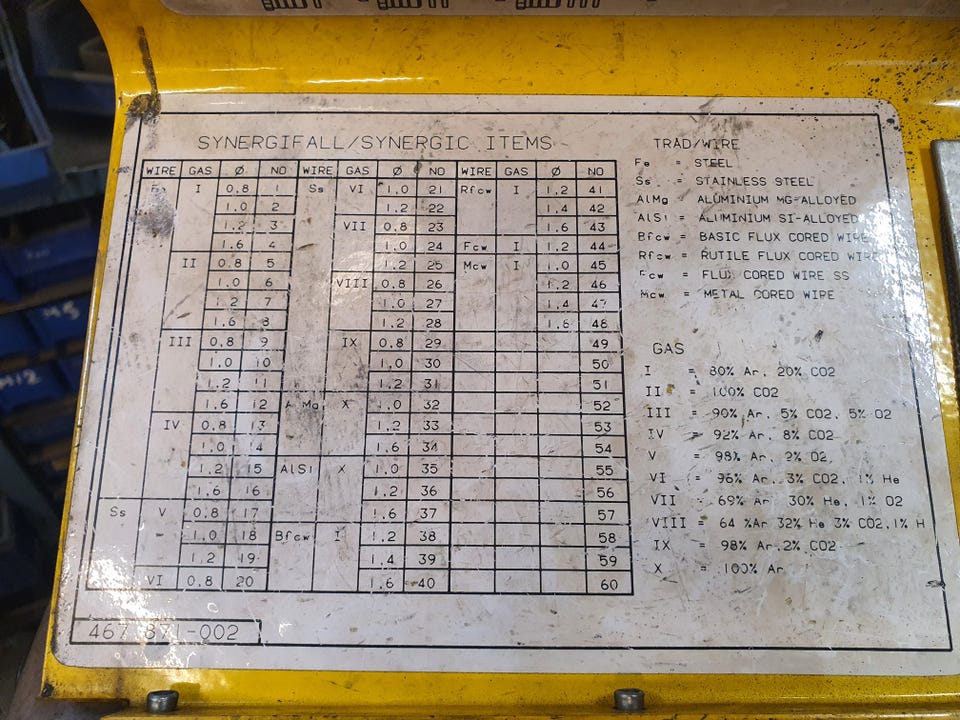 SYNERGIFALL/SYNERGIC ITEMS
WIRE GAS Ø NO WIRE GAS Ø NO WIRE GAS Ø NO
Fe I 0.8 1 Ss VI 1.0 21 Rfcw I 1.2 41
1.0 2 1.2 22 1.4 42
1.2 3 VII 0.8 23 1.6 43
1.6 4 1.0 24 Fcw I 1.2 44
II 0.8 5 1.2 25 Mcw I 1.0 45
1.0 6 VIII 0.8 26 1.2 46
1.2 7 1.0 27 1.4 47
1.6 8 1.2 28 1.6 48
III 0.8 9 IX 0.8 29 49
1.0 10 1.0 30 50
1.2 11 1.2 31 51
1.6 12 AlMg X 1.0 32 52
IV 0.8 13 1.2 33 53
1.0 14 1.6 34 54
1.2 15 AlSi X 1.0 35 55
1.6 16 1.2 36 56
Ss V 0.8 17 1.6 37 57
1.0 18 Bfcw I 1.2 38 58
1.2 19 1.4 39 59
VI 0.8 20 1.6 40 60
467 871-002
TRAD/WIRE
Fe = STEEL
Ss = STAINLESS STEEL
AlMg = ALUMINIUM MG-ALLOYED
AlSi = ALUMINIUM SI-ALLOYED
Bfcw = BASIC FLUX CORED WIRE
Rfcw = RUTILE FLUX CORED WIRE
Fcw = FLUX CORED WIRE SS
Mcw = METAL CORED WIRE
GAS
I = 80% Ar, 20% CO2
II = 100% CO2
III = 90% Ar, 5% CO2, 5% O2
IV = 92% Ar, 8% CO2
V = 98% Ar, 2% O2
VI = 96% Ar, 3% CO2, 1% He
VII = 69% Ar 30% He, 1% O2
VIII = 64 %Ar 32% He 3% CO2,1% H
IX = 98% Ar,2% CO2
X = 100% Ar